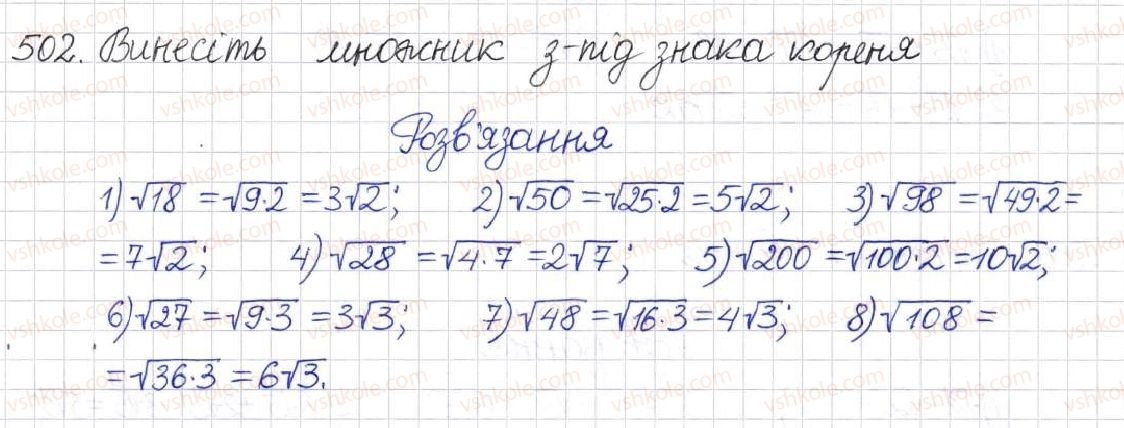 502. Винесіть множник з-під знака кореня
Розв'язання
1) √18 = √9·2 = 3√2; 2) √50 = √25·2 = 5√2; 3) √98 = √49·2 =
= 7√2; 4) √28 = √4·7 = 2√7; 5) √200 = √100·2 = 10√2;
6) √27 = √9·3 = 3√3; 7) √48 = √16·3 = 4√3; 8) √108 =
= √36·3 = 6√3.
vshkole.com